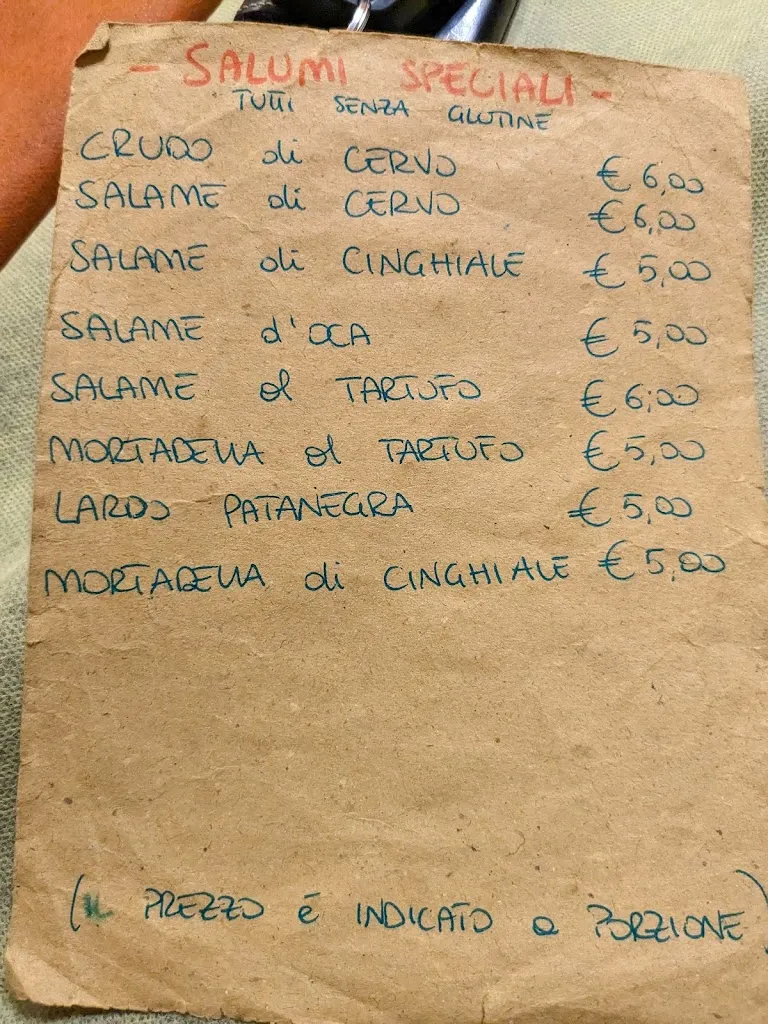 - SALUMI SPECIALI -
TUTTI SENZA GLUTINE
CRUDO di CERVO € 6,00
SALAME di CERVO € 6,00
SALAME di CINGHIALE € 5,00
SALAME d'OCA € 5,00
SALAME al TARTUFO € 6,00
MORTADELLA al TARTUFO € 5,00
LARDO PATANEGRA € 5,00
MORTADELLA di CINGHIALE € 5,00
(IL PREZZO é INDICATO a PORZIONE)